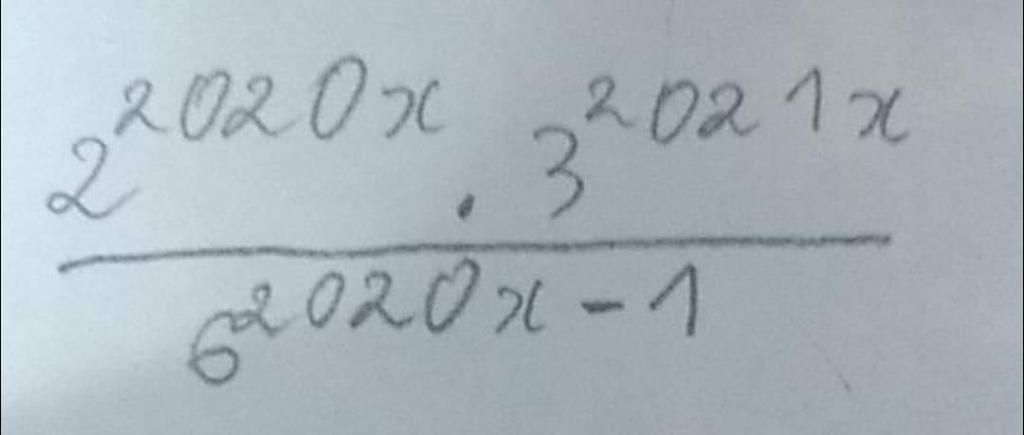 2^2020x . 3^2021x
6^2020x-1